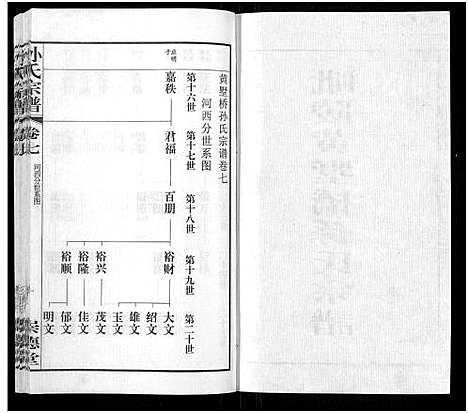 黄墅桥孙氏宗谱卷七
河西分世系图
第十六世
第十七世
第十八世
第十九世
第二十世
应明
子
嘉秩
君福
百朋
裕财
裕兴
裕隆
裕顺
大文
绍文
雄文
玉文
茂文
佳文
郁文
明文
孙氏宗谱
卷七
河西分世系图